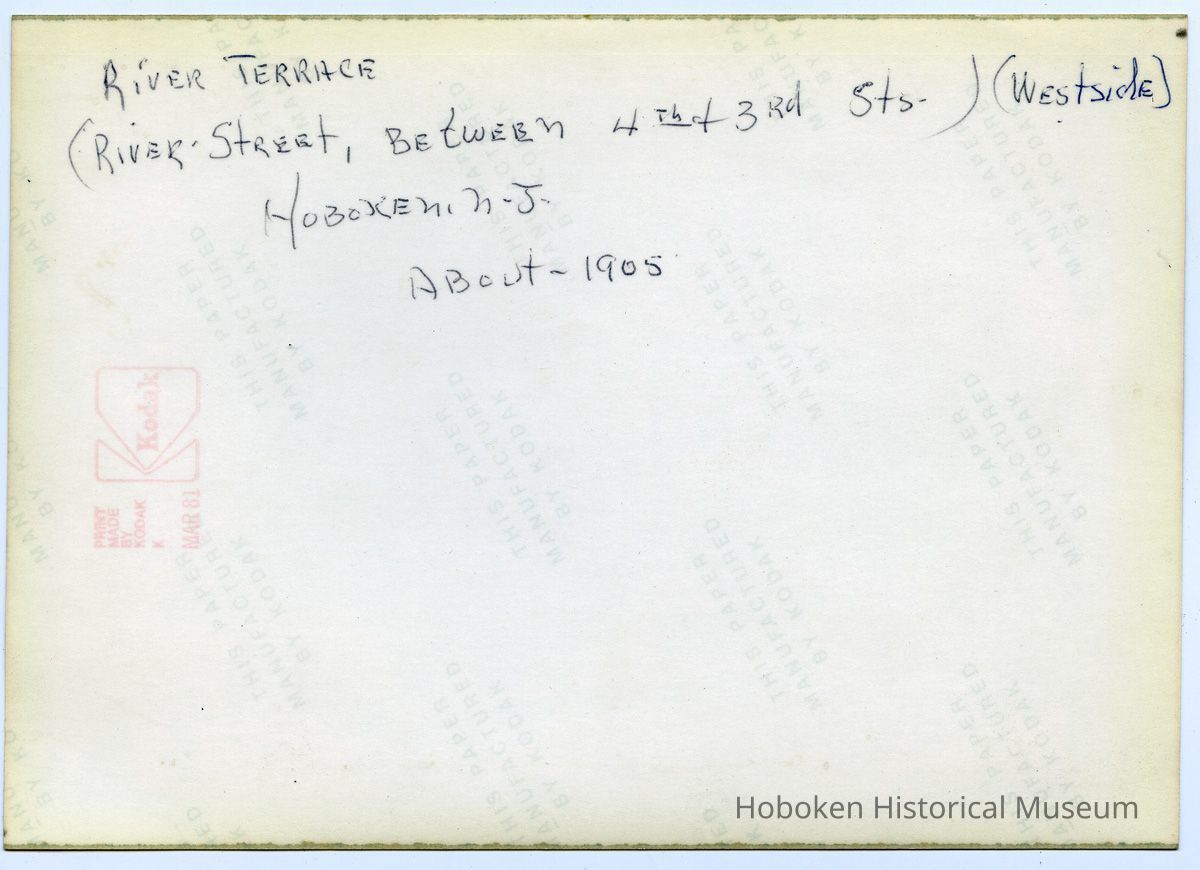 RiVER TERRACE
(RIVER-STREET, BETWEEN 4TH + 3RD Sts.) (Westside)
HOBOKEN, N.J.
ABOUT - 1905
Kodak
PRINT
MADE
BY
KODAK
K
MAR 81
THIS PAPER
MANUFACTURED
BY KODAK
THIS PAPER
MANUFACTURED
BY KODAK
THIS PAPER
MANUFACTURED
BY KODAK
THIS PAPER
MANUFACTURED
BY KODAK
THIS PAPER
MANUFACTURED
BY KODAK
THIS PAPER
MANUFACTURED
BY KODAK
Hoboken Historical Museum